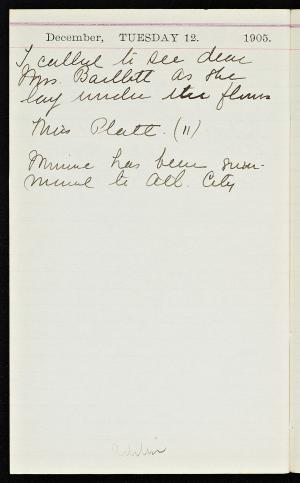 December, TUESDAY 12. 1905.
I called to see dear
Mrs. Bartlett as she
lay under the flowers
Miss Platt. (11)
Minnie has been sum-
moned to Atl. City